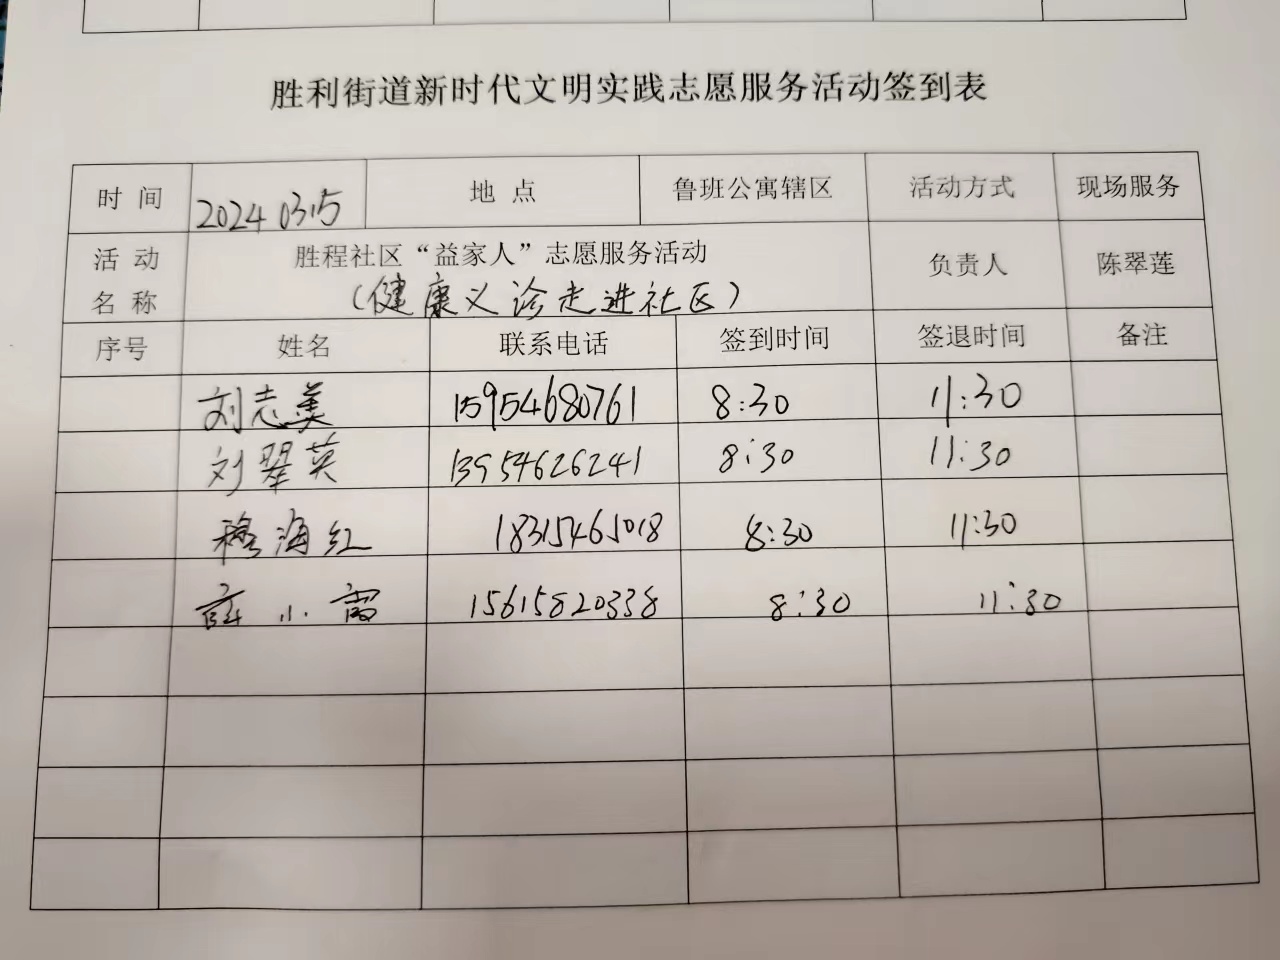 胜利街道新时代文明实践志愿服务活动签到表
时 间 2024 03.15 地 点 鲁班公寓辖区 活动方式 现场服务
活 动 名 称 胜程社区“益家人”志愿服务活动 负责人 陈翠莲
（健康义诊走进社区）
序号 姓名 联系电话 签到时间 签退时间 备注
刘志美 15954680761 8:30 11:30
刘翠英 13954626241 8:30 11:30
穆海红 18315465018 8:30 11:30
薛小霞 15615820338 8:30 11:30